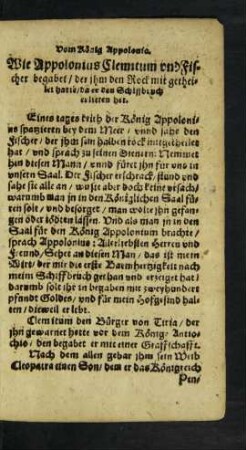 Vom König Appolonio.
Wie Appolonius Clemitum vnd Fischer
begabet / der ihm den Rock mit getheilet
hatte / da er den Schiffbruch
erlitten hat.
Eines tages reith der König Appolonius
spatzieren bey dem Meer / vnnd sahe den
Fischer / der ihm sein halben rock mitgetheilet
hat / vnd sprach zu seinen Dienern: Nemmet
hin diesen Mann / vnnd füret jhn für vns in
vnsern Saal. Der Fischer erschrack / stund vnd
sahe sie alle an / wuste aber doch keine vrsach /
warumb man jn in den Königlichen Saal füren
solt / vnd besorget / man wolte jhn gefangen
oder tödten lassen. Und als man jn in den
Saal für den König Appolonium brachte /
sprach Appolonius: Allerliebsten Herren vnd
Freund / Sehet an diesen Man / das ist mein
Wirt / der mir die erste Barmhertzigkeit nach
meim Schiffbruch gethan vnd erzeiget hat /
darumb solt ihr in begaben mit zweyhundert
pfundt Goldes / vnd für mein Hofgesind halten
/ dieweil er lebt.
Clemitum den Bürger von Tiria / der
jhn gewarnet hatte vor dem König Antiochio
/ den begabet er mit einer Graffschafft.
Nach dem allen gebar jhm sein Weib
Cleopatra einen Son / dem er das Königreich
Pen-